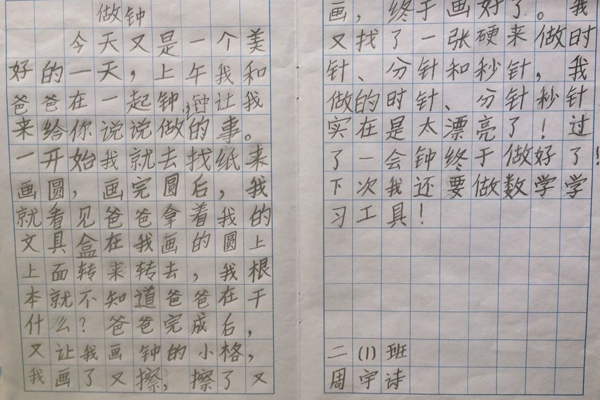 做钟
今天又是一个美
好的一天，上午我和
爸爸在一起钟，钟让我
来给你说说做的事。
一开始我就去找纸来
画圆，画完圆后，我
就看见爸爸拿着我的
文具盒在我画的圆上
上面转来转去，我根
本就不知道爸爸在干
什么？爸爸完成后，
又让我画钟的小格，
我画了又擦，擦了又
画，终于画好了。我
又找了一张硬来做时
针、分针和秒针，我
做的时针、分针秒针
实在是太漂亮了！过
了一会钟终于做好了！
下次我还要做数学学
习工具！
二(1)班
周宇诗